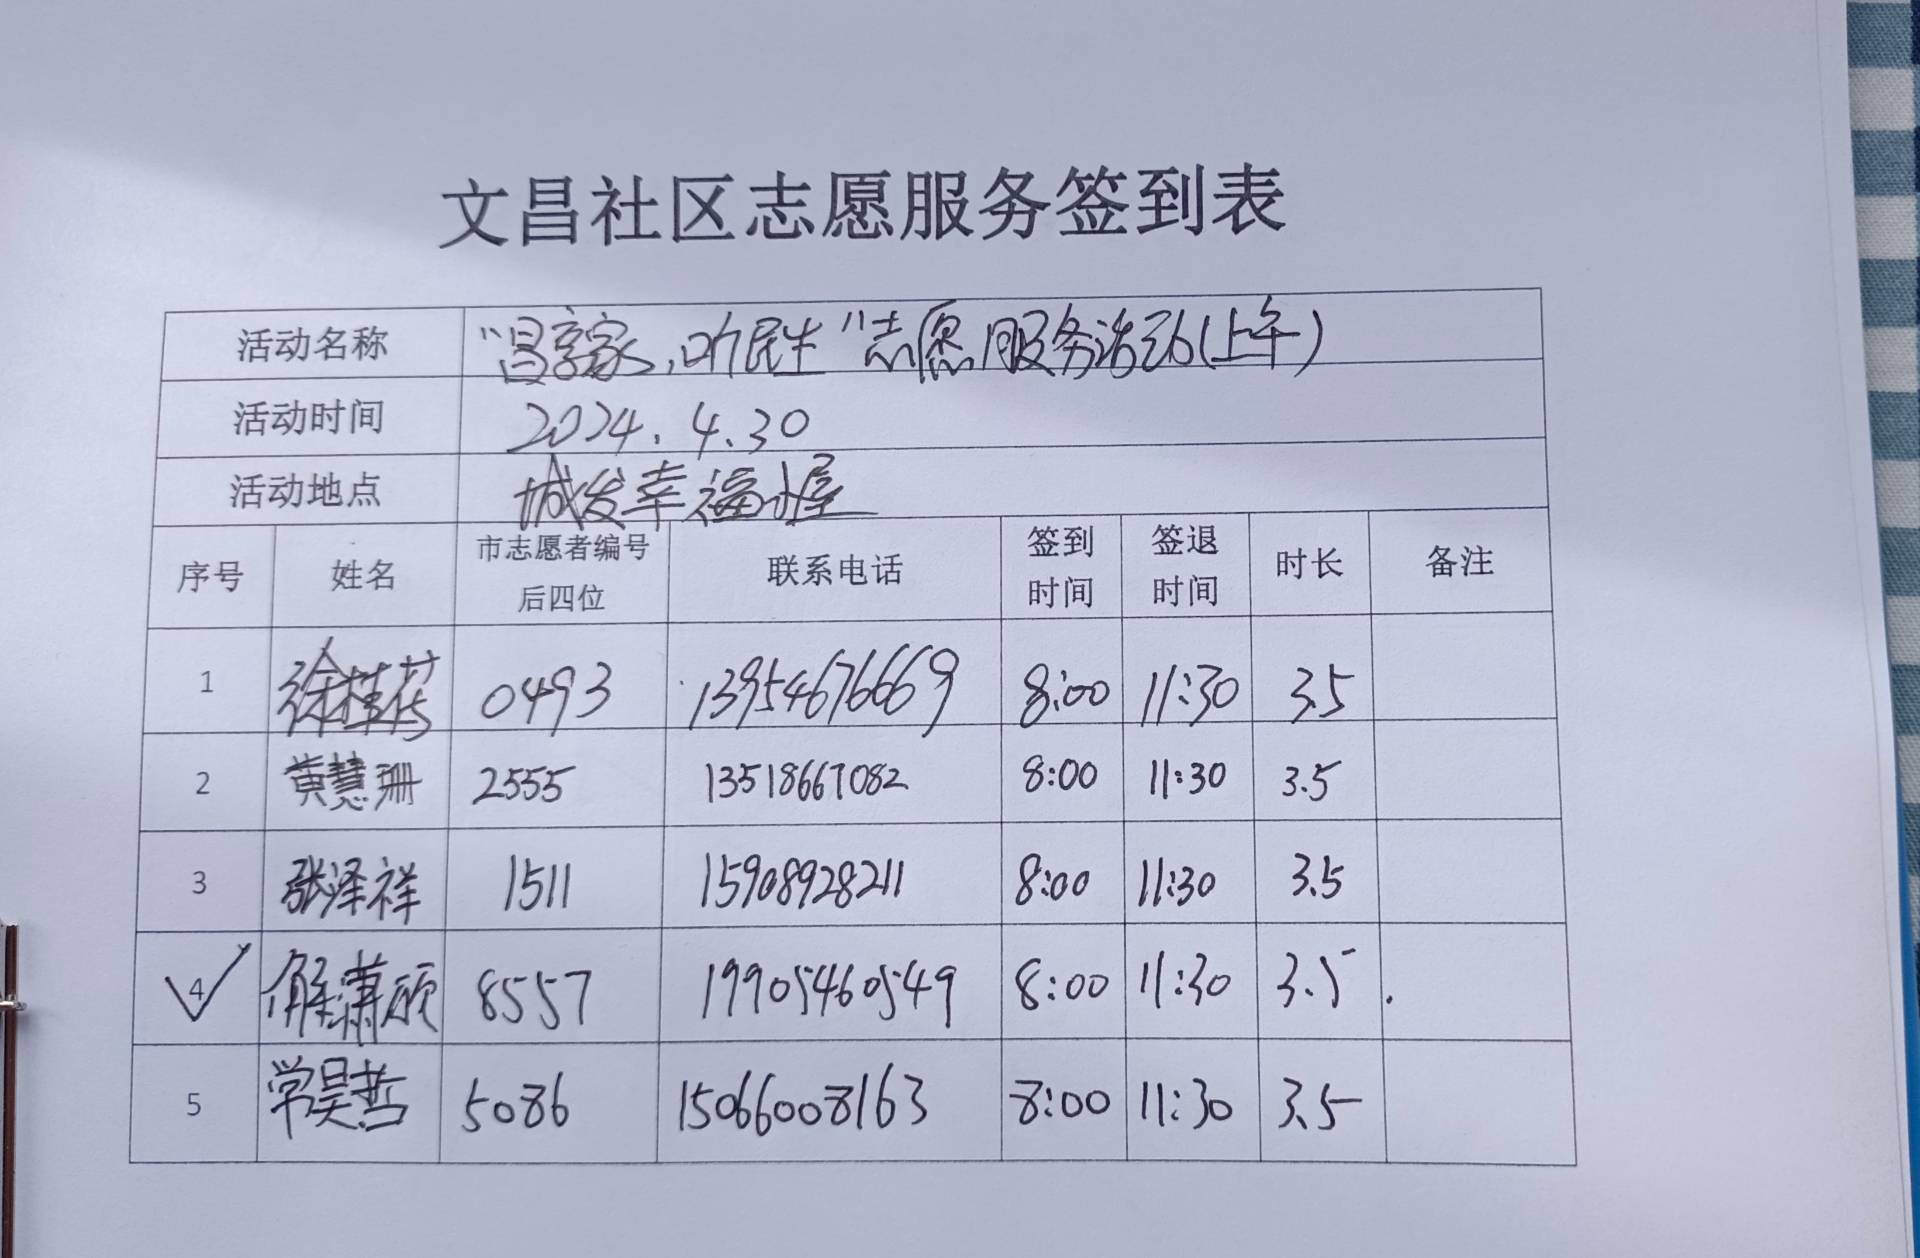 文昌社区志愿服务签到表
活动名称 “昌享家,听民生”志愿服务活动(上午)
活动时间 2024.4.30
活动地点 城发幸福小屋
序号 姓名 市志愿者编号后四位 联系电话 签到时间 签退时间 时长 备注
1 徐桂荷 0493 13954676669 8:00 11:30 3.5
2 黄慧珊 2555 13518667082 8:00 11:30 3.5
3 张泽祥 1511 15908928211 8:00 11:30 3.5
4 解潇颀 8557 19905460549 8:00 11:30 3.5
5 常昊哲 5086 15066008163 8:00 11:30 3.5